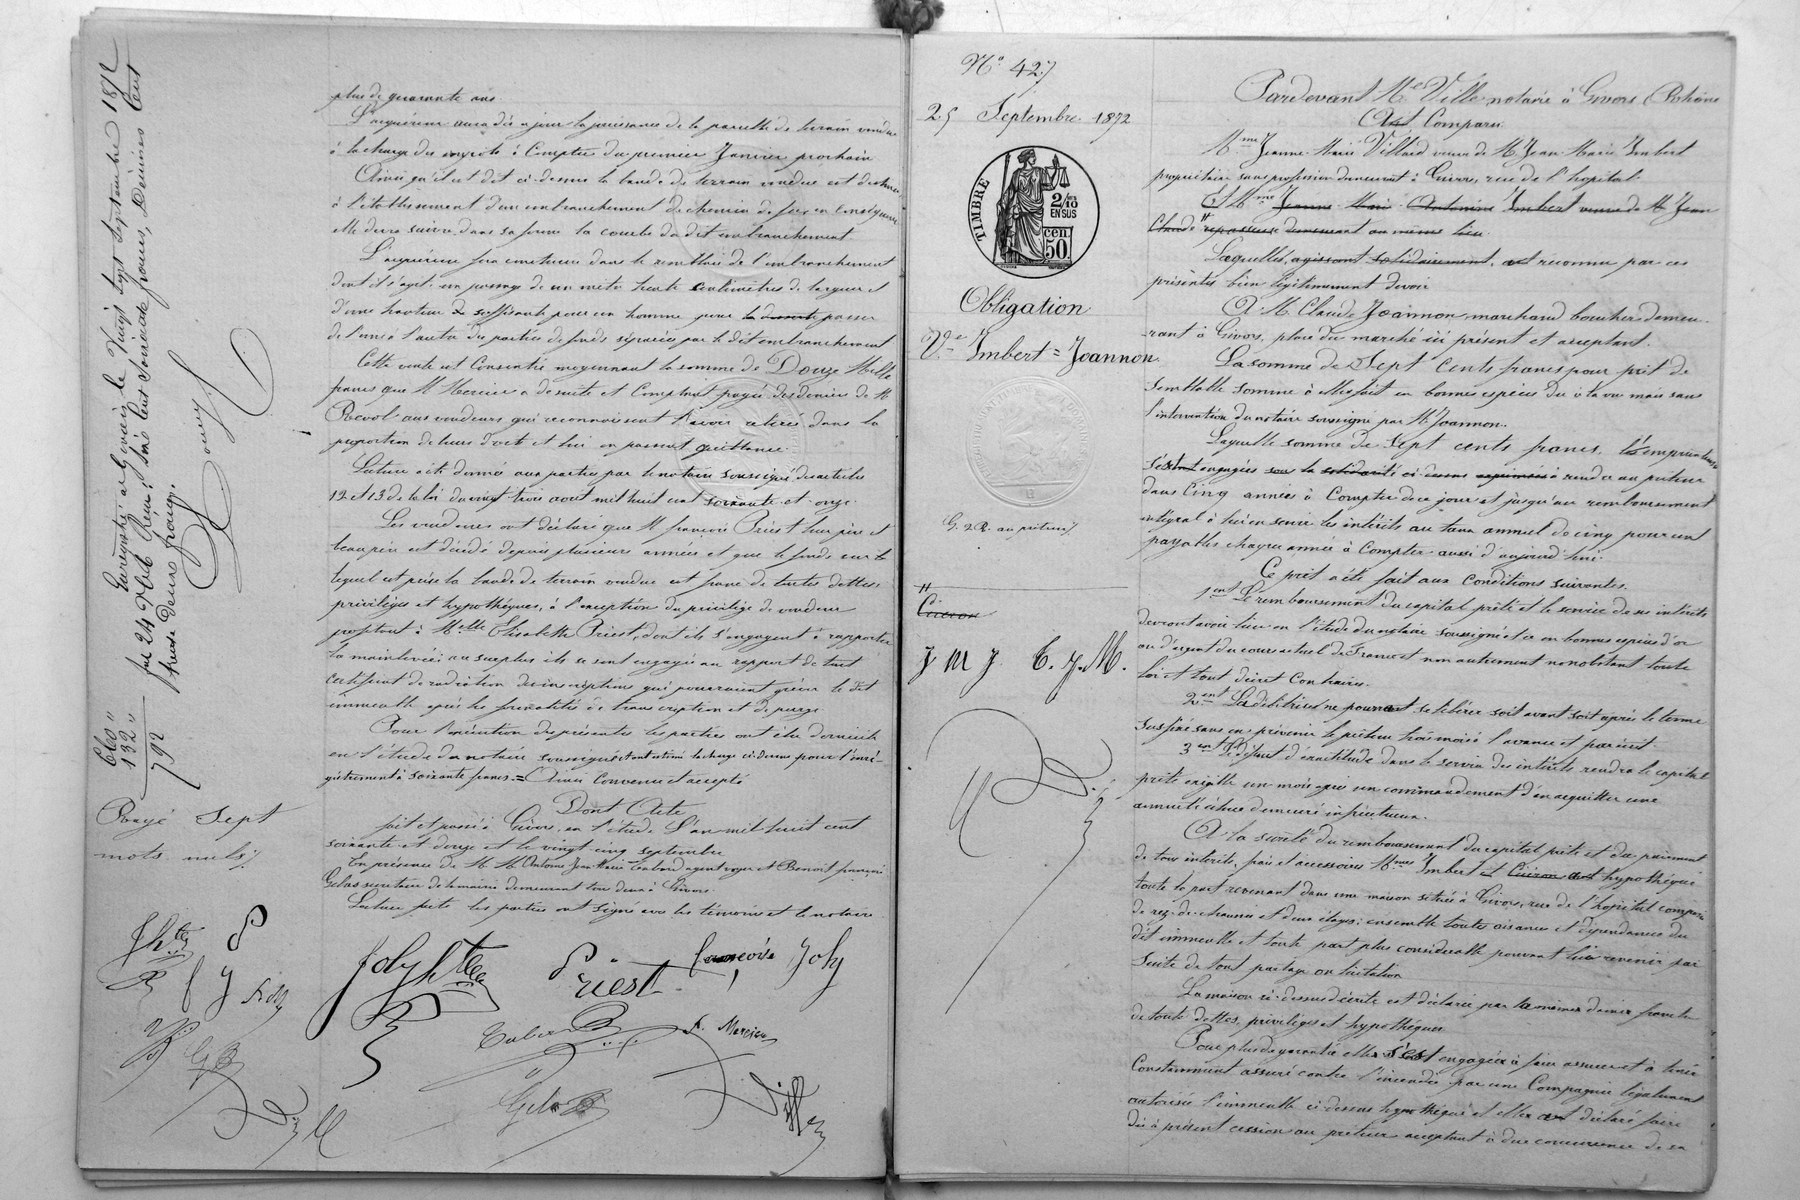 plus de quarante ans
L'acquéreur aura dès ce jour la jouissance de la parcelle de terrain vendue
à la charge des impôts à Compter du premier Janvier prochain
Ainsi qu'il est dit ci-dessus la bande de terrain vendue est destinée
à l'établissement d'un embranchement de chemin de fer en conséquence
elle devra suivre dans sa forme la courbe du dit embranchement.
L'acquéreur fera construire dans le remblai de l'embranchement
dont il s'agit un passage de un mètre trente centimètres de largeur et
d'une hauteur suffisante pour un homme pour passer
de l'une à l'autre des parties de fonds séparées par le dit embranchement
Cette vente est Consentie moyennant la somme de Douze Mille
francs que M Mercier a de suite et Comptant payée des deniers de M
Revol aux vendeurs qui reconnaissent l'avoir retirée dans la
proportion de leurs droits et lui en passent quittance.
Lecture a été donnée aux parties par le notaire soussigné des articles
12 et 13 de la loi du vingt trois août mil huit cent soixante et onze.
Les vendeurs ont déclaré que M françois Priest leur père et
beau père est décédé depuis plusieurs années et que le fonds sur
lequel est prise la bande de terrain vendue est franc de toutes dettes
privilèges et hypothèques, à l'exception du privilège de vendeur
profitant à Melle Elisabeth Priest, dont ils s'engagent à rapporter
la mainlevée au surplus ils se sont engagés au rapport de tout
certificat de radiation des inscriptions qui pourraient grever le dit
immeuble après les formalités de transcription et de purge
Pour l'exécution des présentes les parties ont élu domicile
en l'étude du notaire soussigné et ont estimé la charge ci-dessus pour l'enré-
gistrement à soixante francs = Ainsi Convenu et accepté
Dont Acte
fait et passé à Givors, en l'étude L'an mil huit cent
soixante et douze et le vingt cinq septembre
En présence de M M Antoine Jean Marie Tabard agent voyer et Benoit françois
Gelas secrétaire de la mairie demeurant tous deux à Givors
Lecture faite les parties ont signé avec les témoins et le notaire
Joly
Priest
françois Joly
A. Mercier
Gelas
Ville
Enregistré à Givors le Vingt sept septembre 1872
fol 24 Reçu: cinq cent soixante francs, Décimes Cent
trente deux francs.
660"
132"
792
Rayé Sept
mots nuls
No 427
25 Septembre 1872
TIMBRE
2/10
EN SUS
cen.
50.
Obligation
Vve Imbert = Joannon
J M J E. J. M.
Pardevant Me Ville notaire à Givors (Rhône
A Comparu
Mme Jeanne Marie Villard veuve de M Jean Marie Imbert
propriétaire sans profession demeurant à Givors, rue de l'hopital.
Et Mme Jeanne Marie Antonine Imbert veuve de M Jean
Claude repasseuse demeurant au même lieu
Lesquelles, agissant solidairement, ont reconnu par ces
présentes bien légitimement devoir
A M. Claude Joannon marchand boucher demeu-
rant à Givors, place du marché ici présent et acceptant.
La somme de Sept Cents francs pour prêt de
semblable somme à elle fait en bonnes espèces du vu mais sans
l'intervention du notaire soussigné par M Joannon.
Laquelle somme de sept cents francs, l'emprunteuse
s'est engagée sous la solidarité ci dessus exprimée à rendre au prêteur
dans Cinq années à Compter de ce jour et jusqu'au remboursement
intégral à lui en servir les intérêts au taux annuel de cinq pour cent
payables chaque année à Compter aussi d'aujourd'hui
Ce prêt a été fait aux Conditions suivantes.
1ent Le remboursement du capital prêté et le service de ses intérêts
devront avoir lieu en l'étude du notaire soussigné et en bonnes espèces d'or
ou d'argent du cours actuel de France et non autrement nonobstant toute
loi et tout décret Contraires.
2ent La débitrice ne pourra se libérer soit avant soit après le terme
sus fixé sans en prévenir le prêteur trois mois à l'avance et par écrit.
3ent Le défaut d'exactitude dans le service des intérêts rendra le capital
prêté exigible un mois après un commandement d'en acquitter une
annuité échue demeuré infructueux.
A la sureté du remboursement du capital prêté et du paiement
de tous intérêts, frais et accessoires Mmes Imbert et hypothéqué
toute la part revenant dans une maison située à Givors, rue de l'hopital composée
de rez-de-chaussée et deux étages, ensemble toutes aisances et dépendances du
dit immeuble et toute part plus considérable pouvant lui revenir par
suite de tout partage ou licitation
La maison ci-dessus décrite est déclarée par la même devoir franche
de toute dettes, privilèges et hypothèques
Pour plus de garantie elle s'est engagée à faire assurer et à tenir
Constamment assuré contre l'incendie par une Compagnie légalement
autorisée l'immeuble ci-dessus hypothéqué et elle a déclaré faire
dès à présent cession au prêteur acceptant à due concurrence de sa